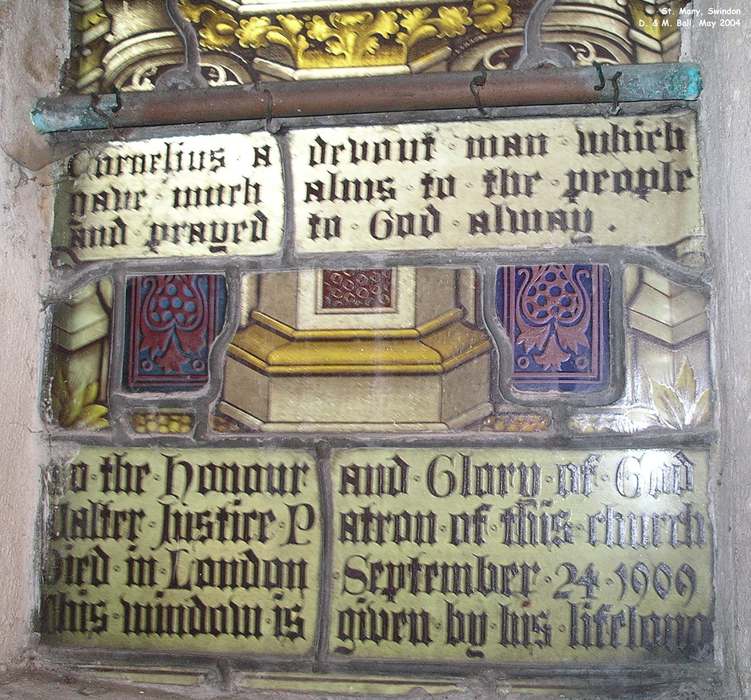 St. Mary, Swindon
D. & M. Ball, May 2004
Cornelius a devout man which
gave much alms to the people
and prayed to God alway.
to the Honour and Glory of God
Walter Justice Patron of this church
Died in London September 24 1909
this window is given by his lifelong